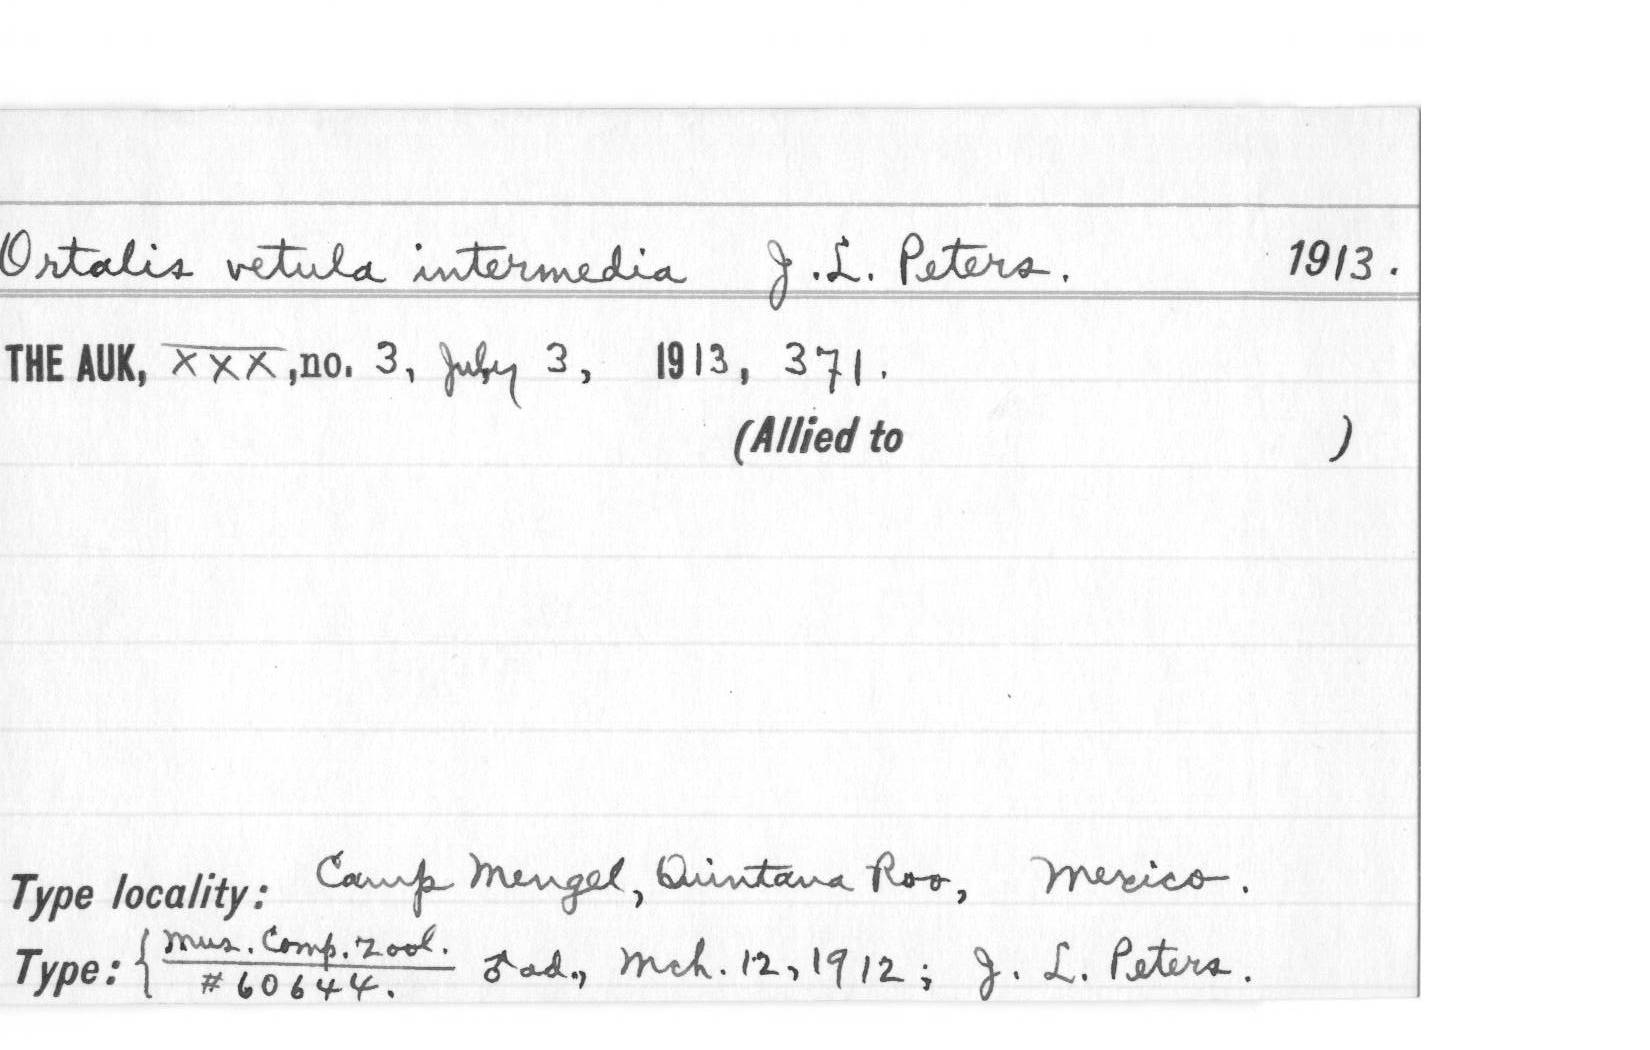 Ortalis vetula intermedia J. L. Peters. 1913.
THE AUK, XXX, no. 3, July 3, 1913, 371.
(Allied to )
Type locality: Camp Mengel, Quintana Roo, Mexico.
Type: { Mus. Comp. Zool. ♂ ad., Mch. 12, 1912; J. L. Peters.
#60644.